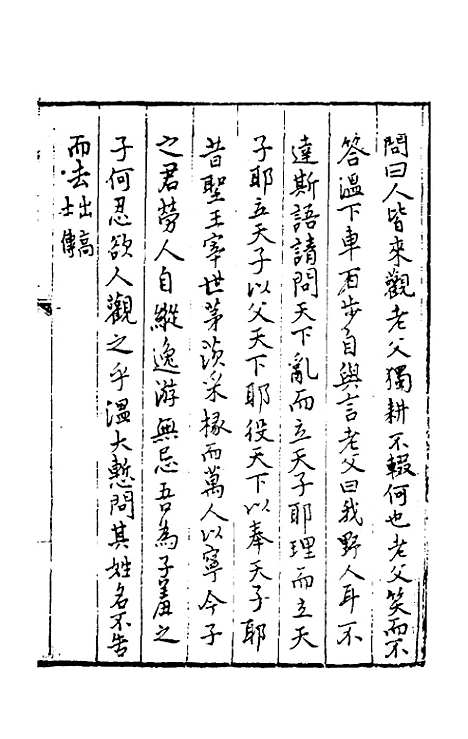 問曰人皆來觀老父獨耕不輟何也老父笑而不
答溫下車百步自與言老父曰我野人耳不
達斯語請問天下亂而立天子耶理而立天
子耶立天子以父天下耶役天下以奉天子耶
昔聖王宰世茅茨采椽而萬人以寧今子
之君勞人自縱逸游無忌吾為子羞之
子何忍欲人觀之乎溫大慙問其姓名不告
而去出高士傳